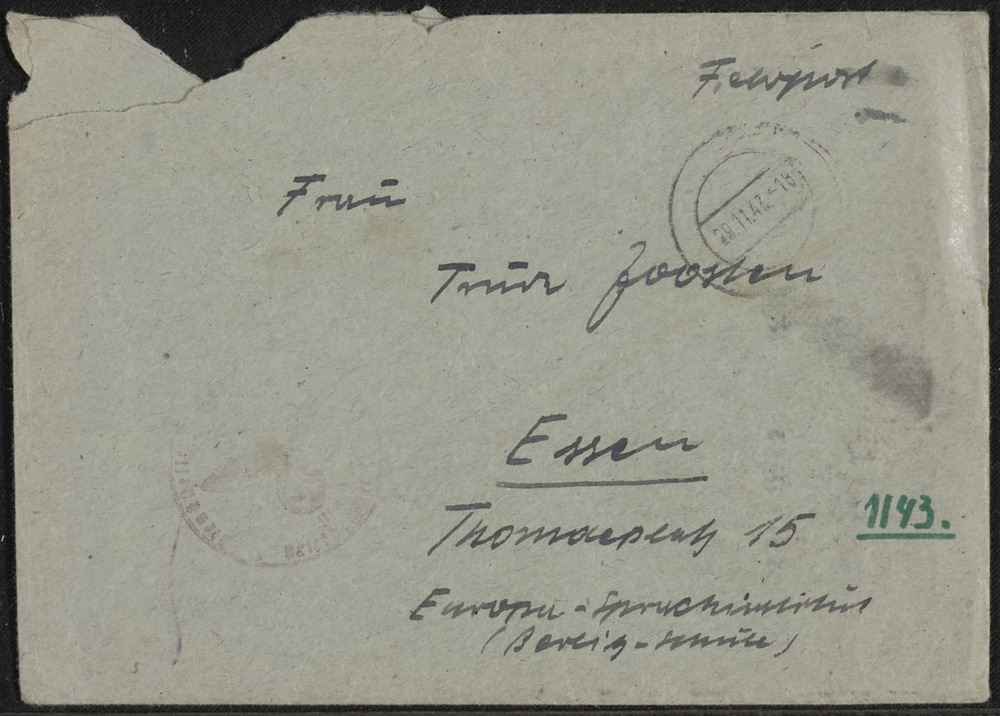 Feldpost
29.11.43.-18
Frau
Trude Joosten
Essen
Thomaeplatz 15
1143.
Europa-Sprachinstitut
(Berlitz-Schule)